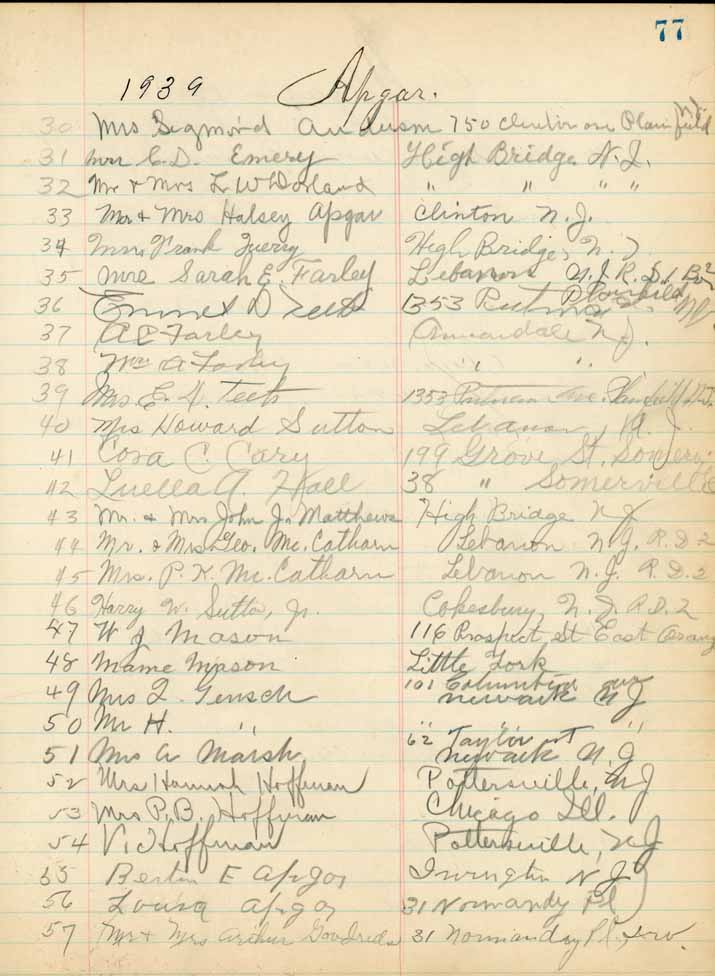 77
1939 Apgar.
30 Mrs Sigmond Anderson 750 Clinton ave Plainfield N.J.
31 Mrs C. D. Emery High Bridge N.J.
32 Mr & Mrs L W Dorland " " " "
33 Mr & Mrs Halsey Apgar Clinton N.J.
34 Mrs. Frank High Bridge, N. J.
35 Mrs Sarah E. Farley Lebanon N.J. R.D.1 Box 2
36 Emmet D Teets 1353 Plainfield NJ
37 A C Farley Annandale N.J.
38 Mrs A Farley " "
39 Mrs. E. D. Teets 1353 Putnam Ave. Plainfield N.J.
40 Mrs Howard Sutton Lebanon, N. J.
41 Cora C. Cary 199 Grove St. Somerv.
42 Luella A. Hall 38 " Somerville
43 Mr. & Mrs John J. Matthews High Bridge N J
44 Mr. & Mrs. Geo. Mc. Catharn Lebanon N.J. R.D.2
45 Mrs. P. K. Mc. Catharn Lebanon N.J. R.D.2
46 Harry W. Sutton, Jr. Cokesbury, N.J. R.D.2
47 W J Mason 116 Prospect St East Orang
48 Mame Mason Little York
49 Mrs Gensch 101 Columbia ave Newark N J
50 Mr H. " " " "
51 Mrs A Marsh 62 Taylor st Newark N.J
52 Mrs Hannah Hoffman Pottersville, N J
53 Mrs P. B. Hoffman Chicago Ill.
54 V. Hoffman Pottersville, N J
55 E Apgar Irvington N J
56 Louisa Apgar 31 Normandy Pl
57 Mr & Mrs Arthur Goodreds 31 Normandy Pl., Irv.